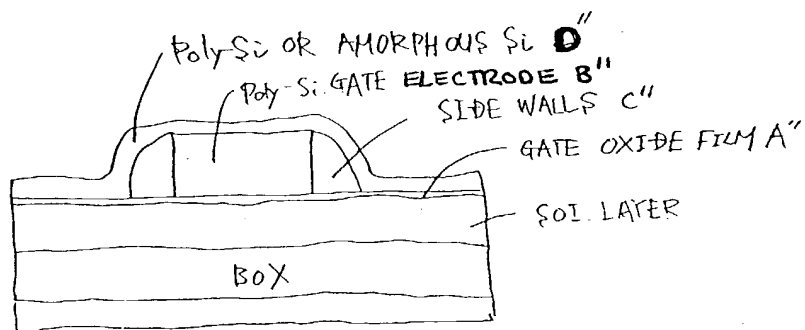 Poly-Si OR AMORPHOUS Si D"
Poly-Si GATE ELECTRODE B"
SIDE WALLS C"
GATE OXIDE FILM A"
SOI LAYER
BOX